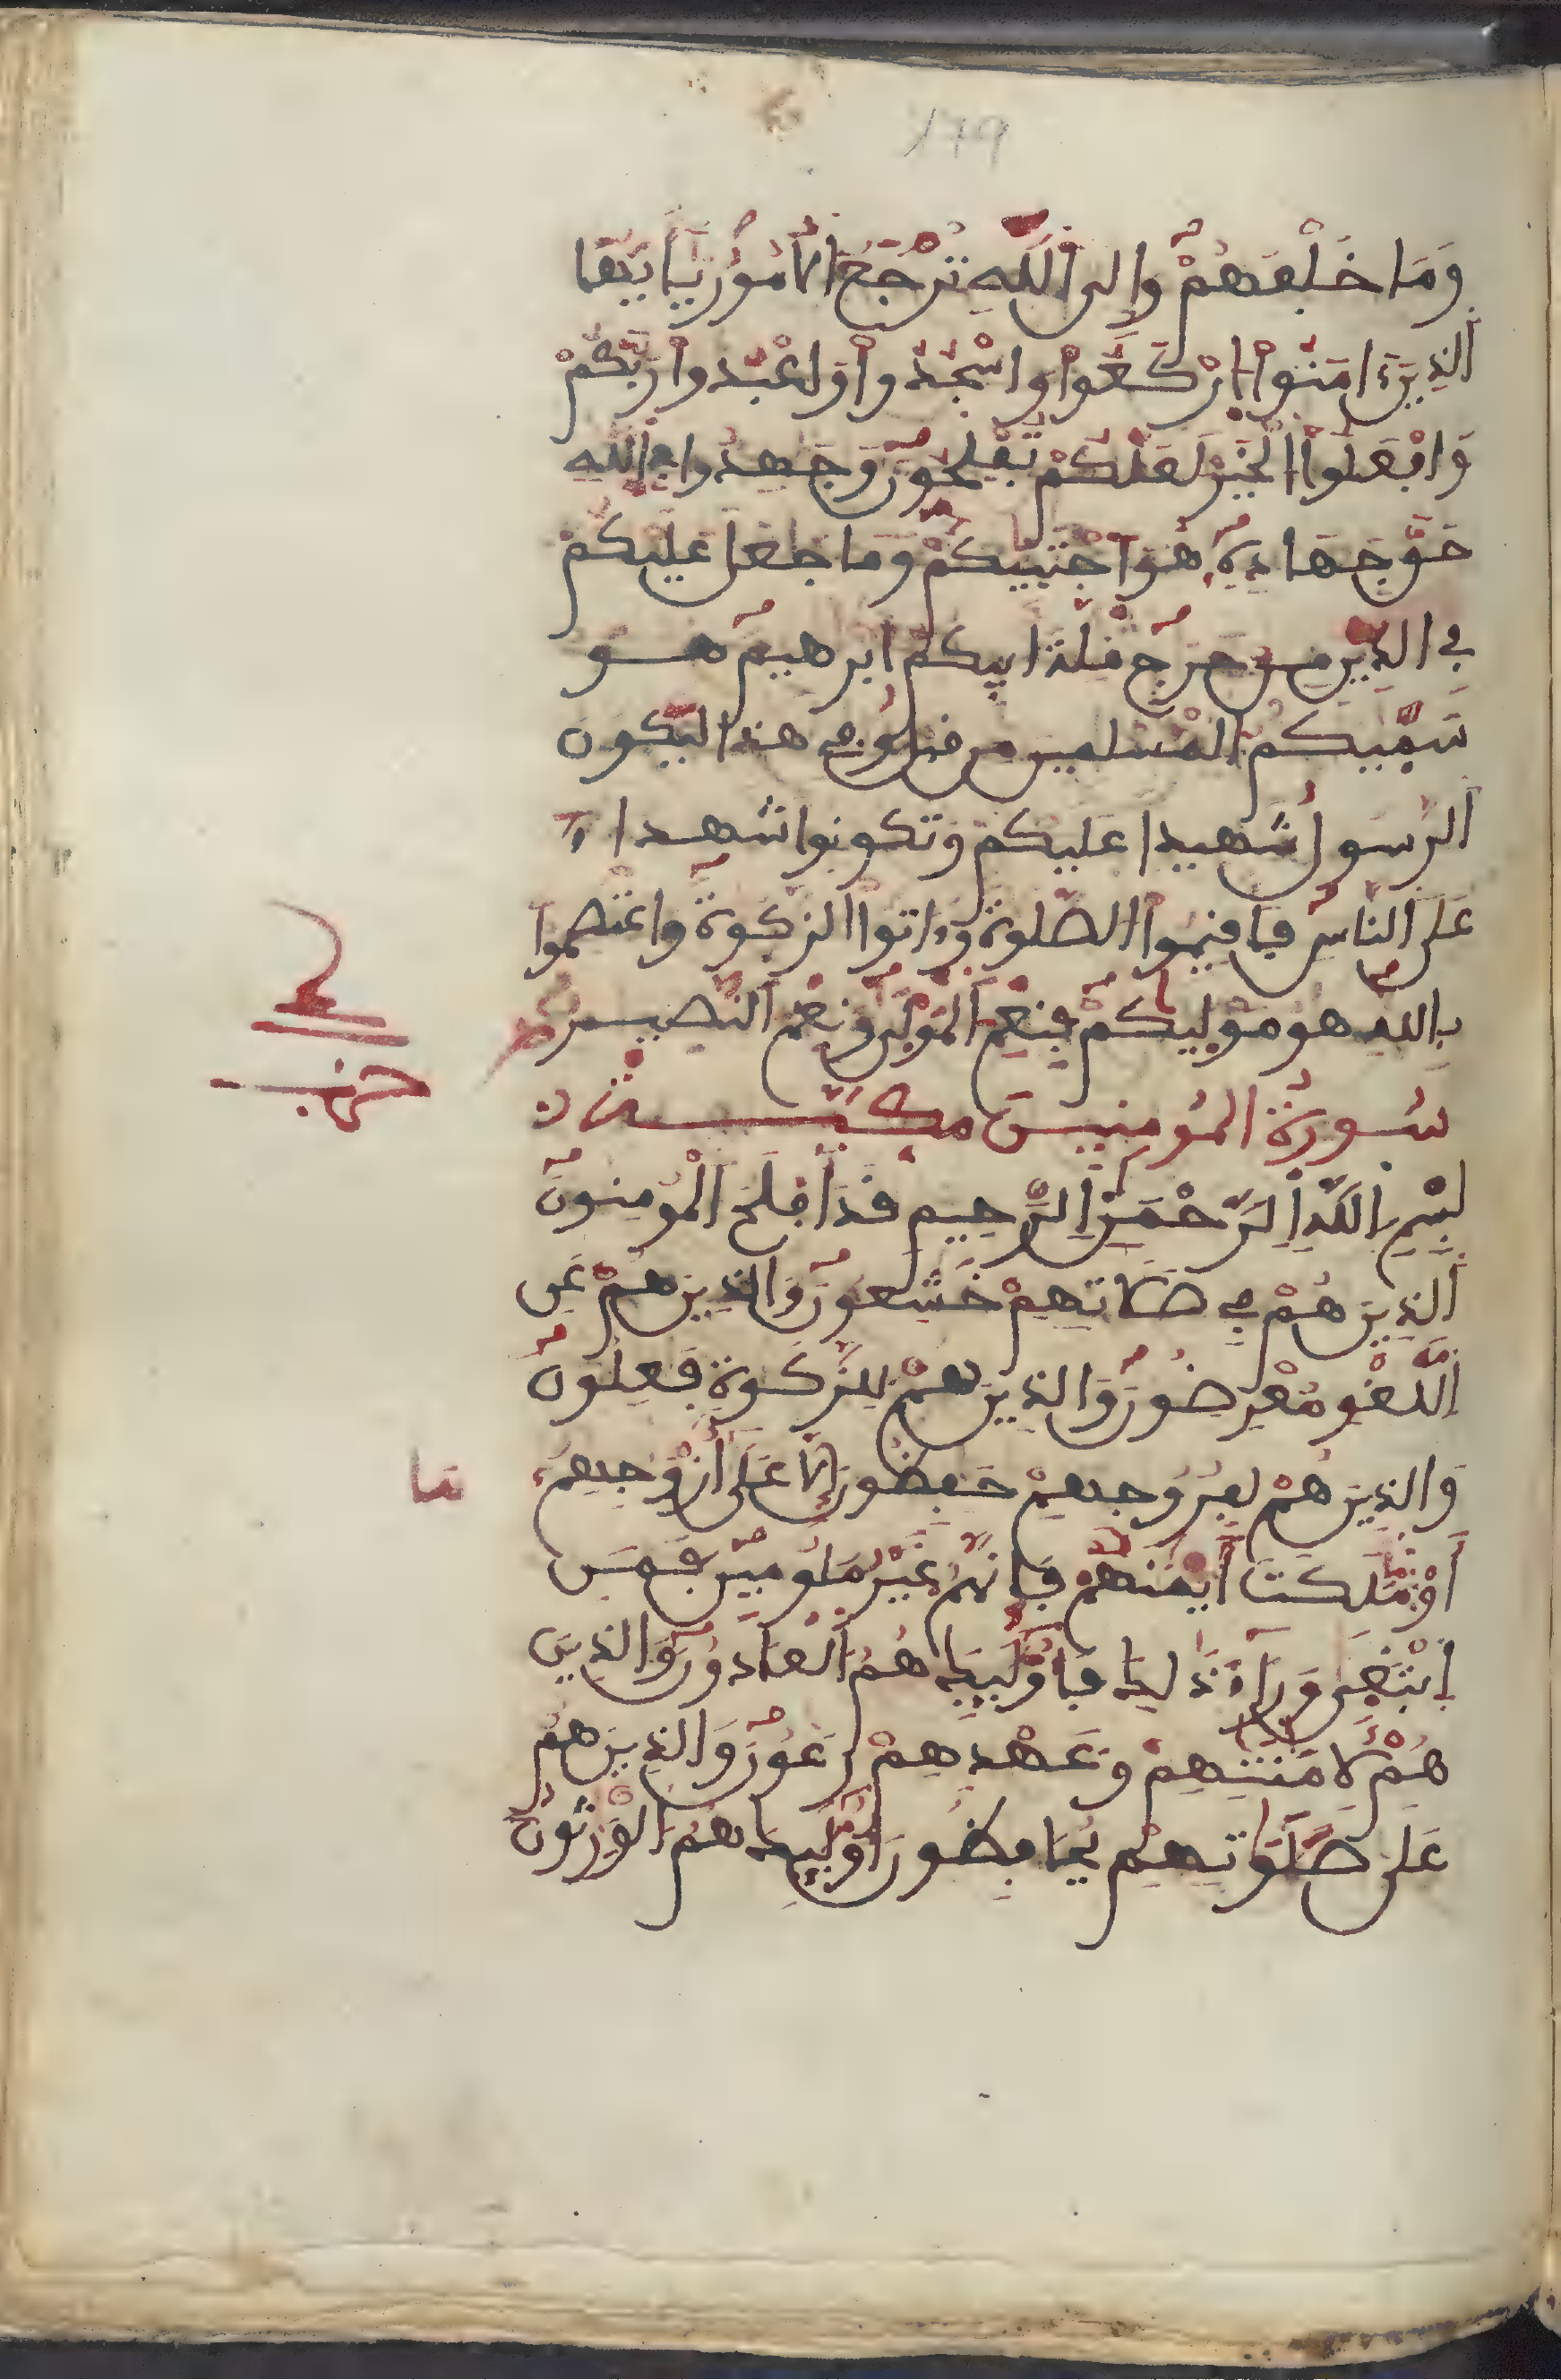 179
وَمَا خَلْفَهُمْ وَإِلَى اَللَّهِ تُرْجَعُ الْأُمُورُ يَٰأَيُّهَا
اَلذِينَ ءَامَنُواْ اُرْكَعُواْ وَاسْجُدُواْ وَاعْبُدُواْ رَبَّكُمْ
وَافْعَلُواْ الْخَيْرَ لَعَلَّكُمْ تُفْلِحُونَ وَجَٰهِدُواْ فِي اللَّهِ
حَقَّ جِهَادِهِ هُوَ اَجْتَبَيٰكُمْ وَمَا جَعَلَ عَلَيْكُمْ
فِي الدِّينِ مِنْ حَرَجٍ مِّلَّةَ أَبِيكُمْ إِبْرَٰهِيمَ هُوَ
سَمَّيٰكُمُ الْمُسْلِمِينَ مِن قَبْلُ وَفِي هَٰذَا لِيَكُونَ
اَلرَّسُولُ شَهِيداً عَلَيْكُمْ وَتَكُونُواْ شُهَدَاءَ
عَلَى اَلنَّاسِ فَأَقِيمُواْ الصَّلَوٰةَ وَءَاتُواْ الزَّكَوٰةَ وَاعْتَصِمُواْ
بِاللَّهِ هُوَ مَوْلَيٰكُمْ فَنِعْمَ اَلْمَوْلَىٰ وَنِعْمَ اَلنَّصِيرُ
حزب
سُورَةُ الْمُؤْمِنِينَ مَكِّيَّةٌ
بِسْمِ اِللَّهِ اِلرَّحْمَٰنِ اِلرَّحِيمِ قَدَ اَفْلَحَ اَلْمُؤْمِنُونَ
اَلذِينَ هُمْ فِي صَلَاتِهِمْ خَٰشِعُونَ وَالذِينَ هُمْ عَنِ
اِللَّغْوِ مُعْرِضُونَ وَالذِينَ هُمْ لِلزَّكَوٰةِ فَٰعِلُونَ
وَالذِينَ هُمْ لِفُرُوجِهِمْ حَٰفِظُونَ إِلَّا عَلَىٰ أَزْوَٰجِهِمُ
أَوْ مَا مَلَكَتَ اَيْمَٰنُهُمْ فَإِنَّهُمْ غَيْرُ مَلُومِينَ فَمَنِ
اِبْتَغَىٰ وَرَاءَ ذَٰلِكَ فَأُوْلَٰئِكَ هُمُ اَلْعَادُونَ وَالذِينَ
هُمْ لِأَمَٰنَٰتِهِمْ وَعَهْدِهِمْ رَٰعُونَ وَالذِينَ هُمْ
عَلَىٰ صَلَوَٰتِهِمْ يُحَافِظُونَ أُوْلَٰئِكَ هُمُ اَلْوَٰرِثُونَ